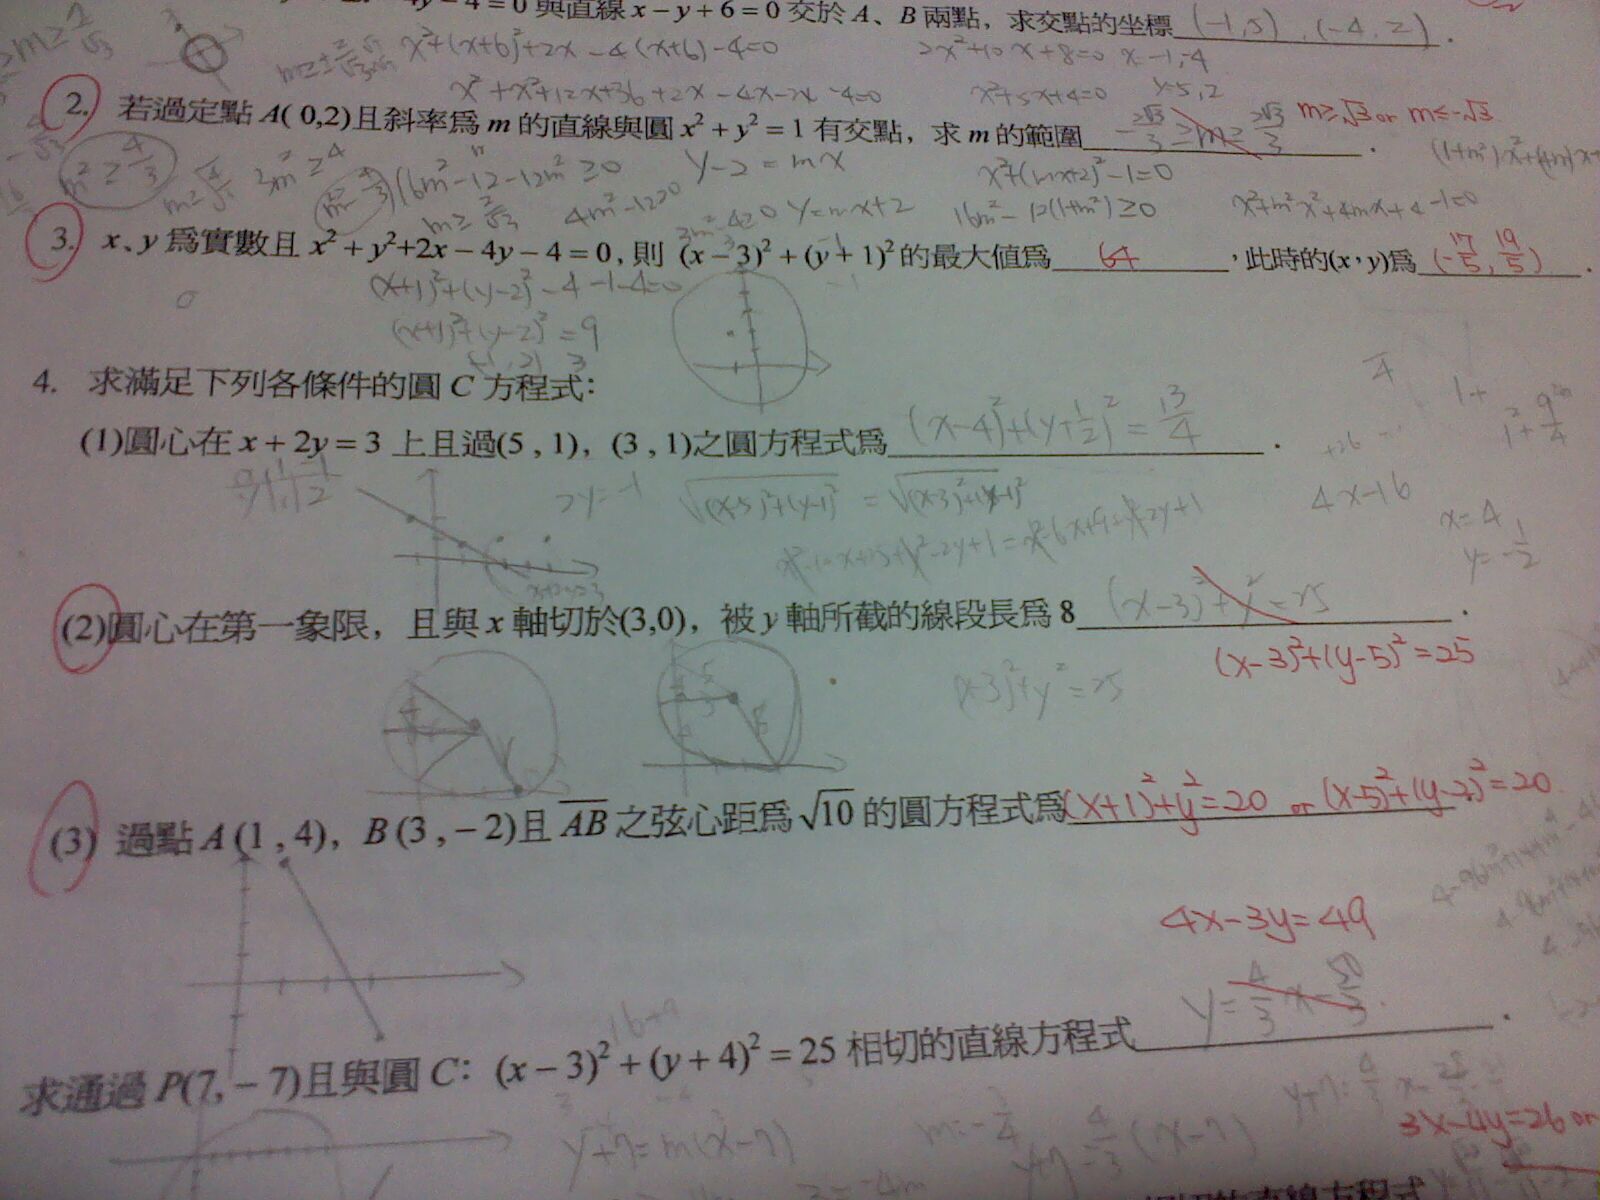 -4y-4=0與直線 x-y+6=0 交於 A、B 兩點，求交點的坐標 (-1,5),(-4,2).
x²+(x+6)²+2x-4(x+6)-4=0 2x²+10x+8=0 x=-1,-4
x²+x²+12x+36+2x-4x-24-4=0 x²+5x+4=0 y=5,2
2. 若過定點 A( 0,2)且斜率為 m 的直線與圓 x²+y²=1 有交點，求 m 的範圍 m≥√3 or m≤-√3
m²≥4/3 3m²≥4 16m²-12-12m²≥0 y-2=mx x²+(mx+2)²-1=0
m≥2/√3 4m²-12≥0 y=mx+2 16m²-12(1+m²)≥0 x²+m²x²+4mx+4-1=0
3. x、y 為實數且 x²+y²+2x-4y-4=0，則 (x-3)²+(y+1)²的最大值為 64，此時的(x，y)為 (-17/5, 19/5).
(x+1)²+(y-2)²-4-1-4=0
(x+1)²+(y-2)²=9
(-1,2) 3
4. 求滿足下列各條件的圓 C 方程式：
(1)圓心在 x+2y=3 上且過(5,1)，(3,1)之圓方程式為 (x-4)²+(y+1/2)²=13/4.
2y=-1 √(x-5)²+(y-1)² = √(x-3)²+(y-1)² 4x=16
x²-10x+25+y²-2y+1=x²-6x+9+y²-2y+1 x=4
y=-1/2
(2)圓心在第一象限，且與 x 軸切於(3,0)，被 y 軸所截的線段長為 8 (x-3)²+y²=25.
(x-3)²+(y-5)²=25
(x-3)²+y²=25
(3) 過點 A(1,4)，B(3,-2)且 AB 之弦心距為 √10 的圓方程式為 (x+1)²+y²=20 or (x-5)²+(y-2)²=20
4x-3y=49
y=4/3x-50/3
求通過 P(7,-7)且與圓 C：(x-3)²+(y+4)²=25 相切的直線方程式.
y+7=m(x-7) y+7=4/3(x-7)
3x-4y=26 or